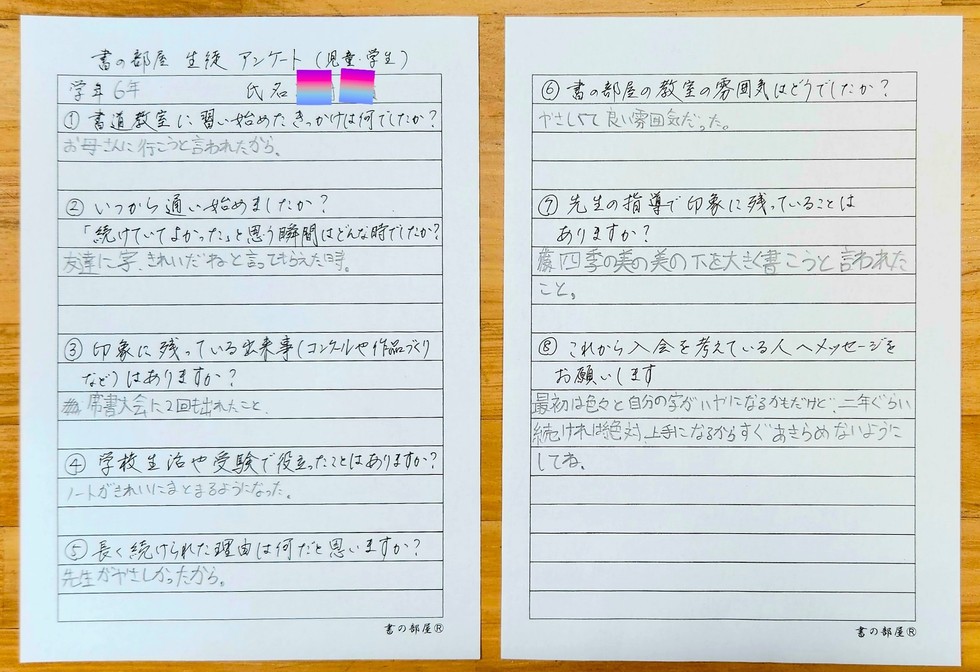 書の部屋 生徒 アンケート（児童・学生）
学年 6年 氏名
① 書道教室に習い始めたきっかけは何でしたか？
お母さんに行こうと言われたから、
② いつから通い始めましたか？
「続けていてよかった」と思う瞬間はどんな時でしたか？
友達に字、きれいだねと言ってもらえた時。
③ 印象に残っている出来事（コンクールや作品づくり
など）はありますか？
席書大会に2回も出れたこと、
④ 学校生活や受験で役立ったことはありますか？
ノートがきれいにまとまるようになった。
⑤ 長く続けられた理由は何だと思いますか？
先生がやさしかったから。
書の部屋®
⑥ 書の部屋の教室の雰囲気はどうでしたか？
やさしくて良い雰囲気だった。
⑦ 先生の指導で印象に残っていることは
ありますか？
四季の美の美の下を大きく書こうと言われた
こと。
⑧ これから入会を考えている人へメッセージを
お願いします
最初は色々と自分の字がいやになるかもだけど、二年ぐらい
続ければ絶対、上手になるからすぐあきらめないように
してね、
書の部屋®